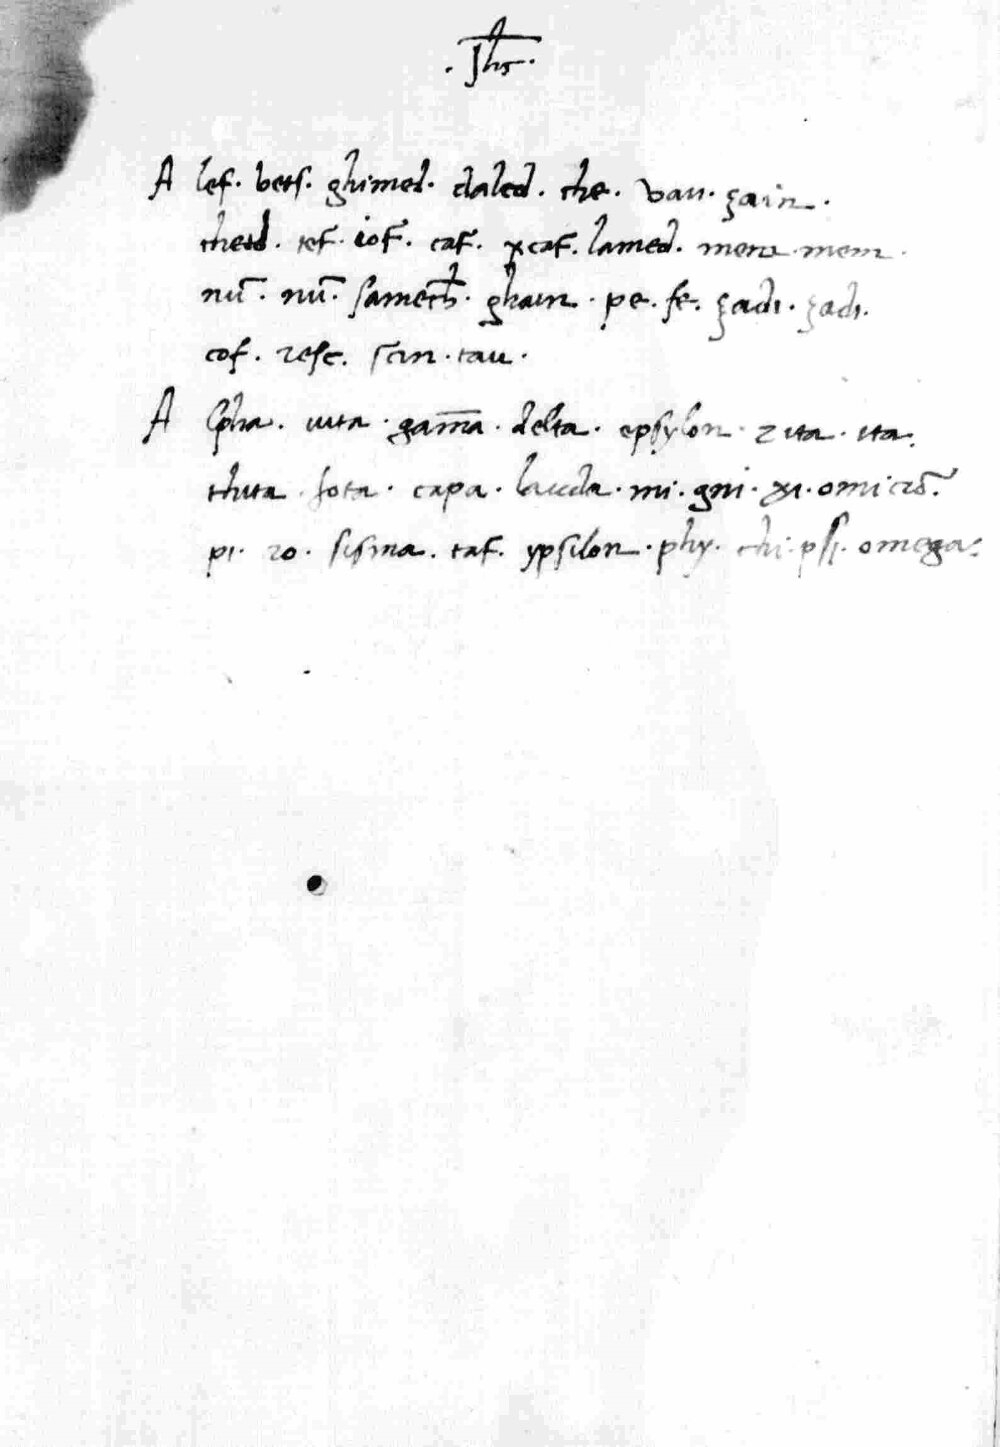 . Jhs .
A lef. bets. ghimel. daled. the. vau. çain.
theth. tef. iof. caf. xcaf. lamed. mem. mem.
nū. nū. samech. ghain. pe. fe. çadi. çadi.
cof. resc. scin. tau.
A lpha. uita. gam̄a. delta. epsylon. zita. ita.
thita. iota. capa. lauda. mi. gni. xi. omicrō.
pi. ro. sisma. taf. ypsilon. phy. chi. psi. omega: